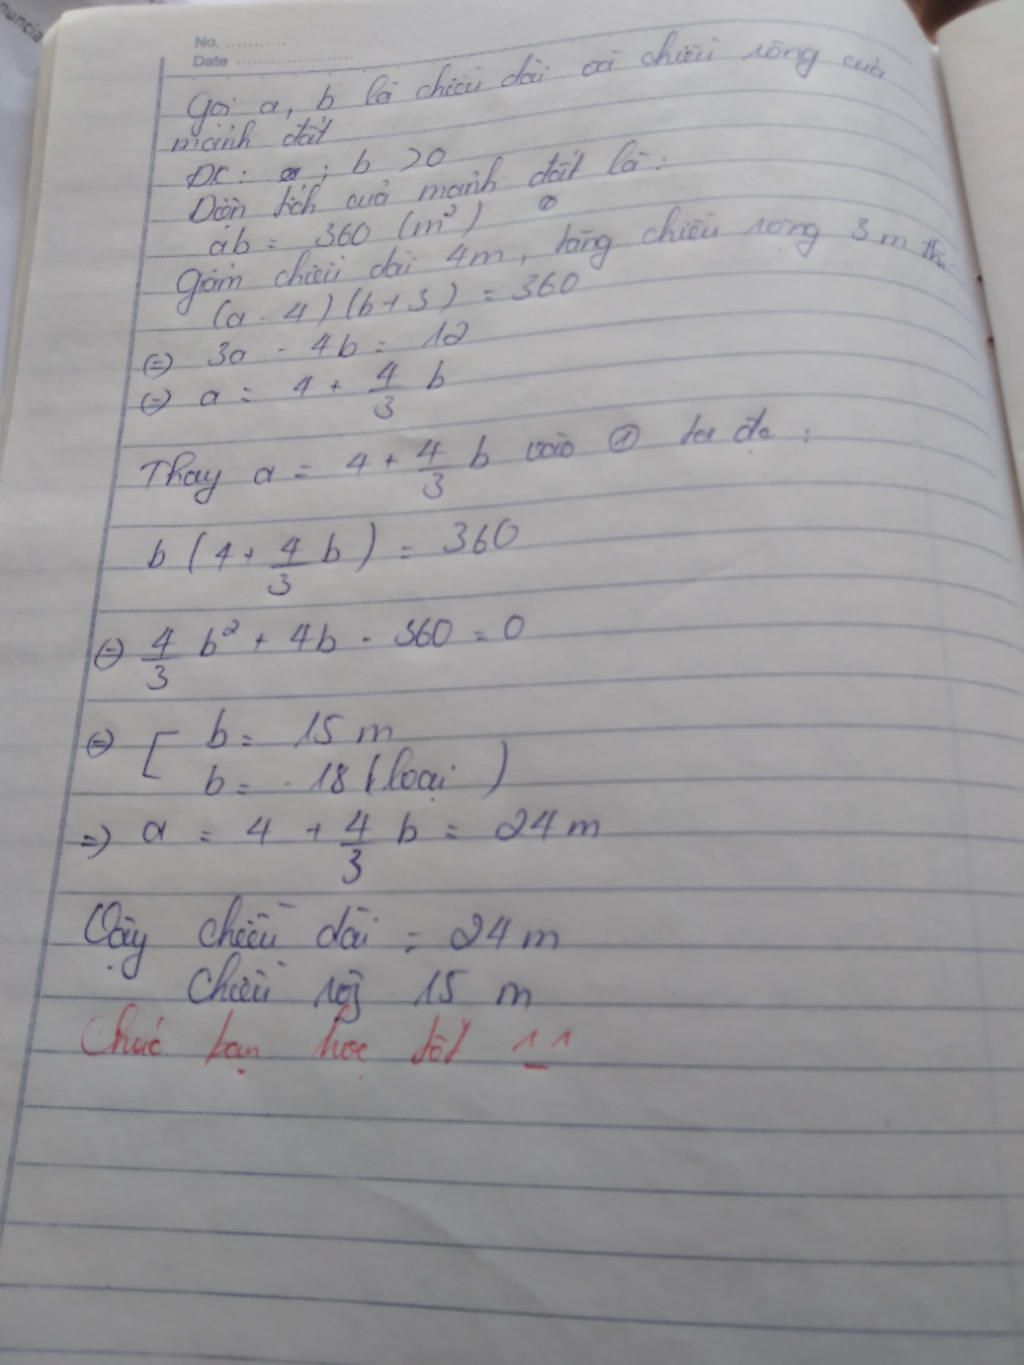 nuncia
No. ............
Date .....................
Gọi a, b là chiều dài và chiều rộng của
mảnh đất
ĐK: a; b > 0
Diện tích của mảnh đất là:
ab = 360 (m²) ①
Giảm chiều dài 4m, tăng chiều rộng 3m thì
(a - 4)(b + 3) = 360
(=) 3a - 4b = 12
(=) a = 4 + 4/3 b
Thay a = 4 + 4/3 b vào ① ta đc:
b(4 + 4/3 b) = 360
(=) 4/3 b² + 4b - 360 = 0
(=) [ b = 15 m
b = -18 (loại)
=) a = 4 + 4/3 b = 24 m
Vậy chiều dài = 24 m
Chiều rộg 15 m
Chúc bạn học tốt ^_^